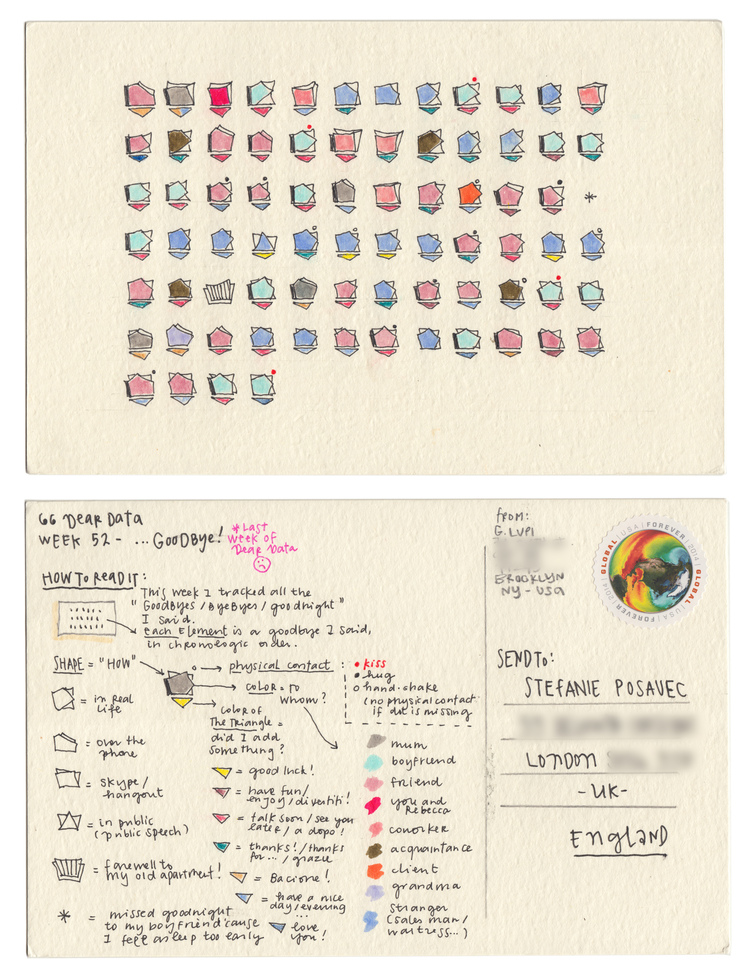 66 Dear Data
WEEK 52 - ... GOODBYE!
*Last
week of
Dear Data
HOW TO READ IT:
This week I tracked all the
"GOODBYES / BYEBYES / goodnight"
I said.
each Element is a goodbye I said,
in chronologic order.
SHAPE = "HOW"
physical contact :
• kiss
• hug
o hand-shake
(no physical contact
if dot is missing
COLOR = TO
WHOM?
COLOR OF
The TRIANGLE =
did I add
something?
= in real
life
= over the
phone
= SKYPE/
hangout
= in public
(public speech)
= farewell to
my old apartment!
* = missed goodnight
to my boyfriend 'cause
I fell asleep too early
= good luck!
= have fun/
enjoy/divertiti!
= talk soon/see you
later/a dopo!
= thanks!/thanks
for.../grazie
= Bacione!
= have a nice
day/evening
...
= love
you!
mum
boyfriend
friend
you and
Rebecca
coworker
acquaintance
client
grandma
Stranger
(sales man/
waitress...)
FROM:
G. LUPI
BROOKLYN
NY - USA
GLOBAL | USA | FOREVER | 2014
SEND TO:
STEFANIE POSAVEC
LONDON
- UK -
England